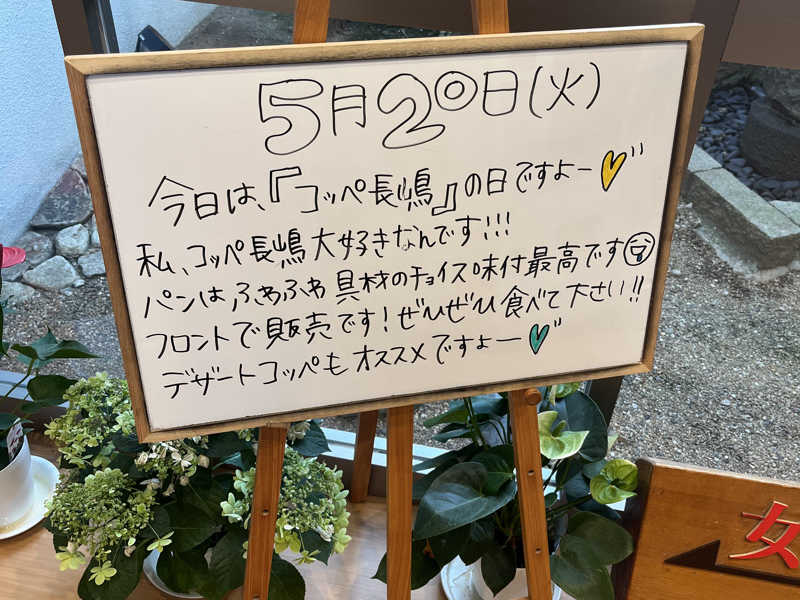 5月20日(火)
今日は、『コッペ長嶋』の日ですよー
私、コッペ長嶋大好きなんです!!!
パンはふわふわ具材のチョイス味付最高です
フロントで販売です!ぜひぜひ食べて下さい!!
デザートコッペもオススメですよー
女